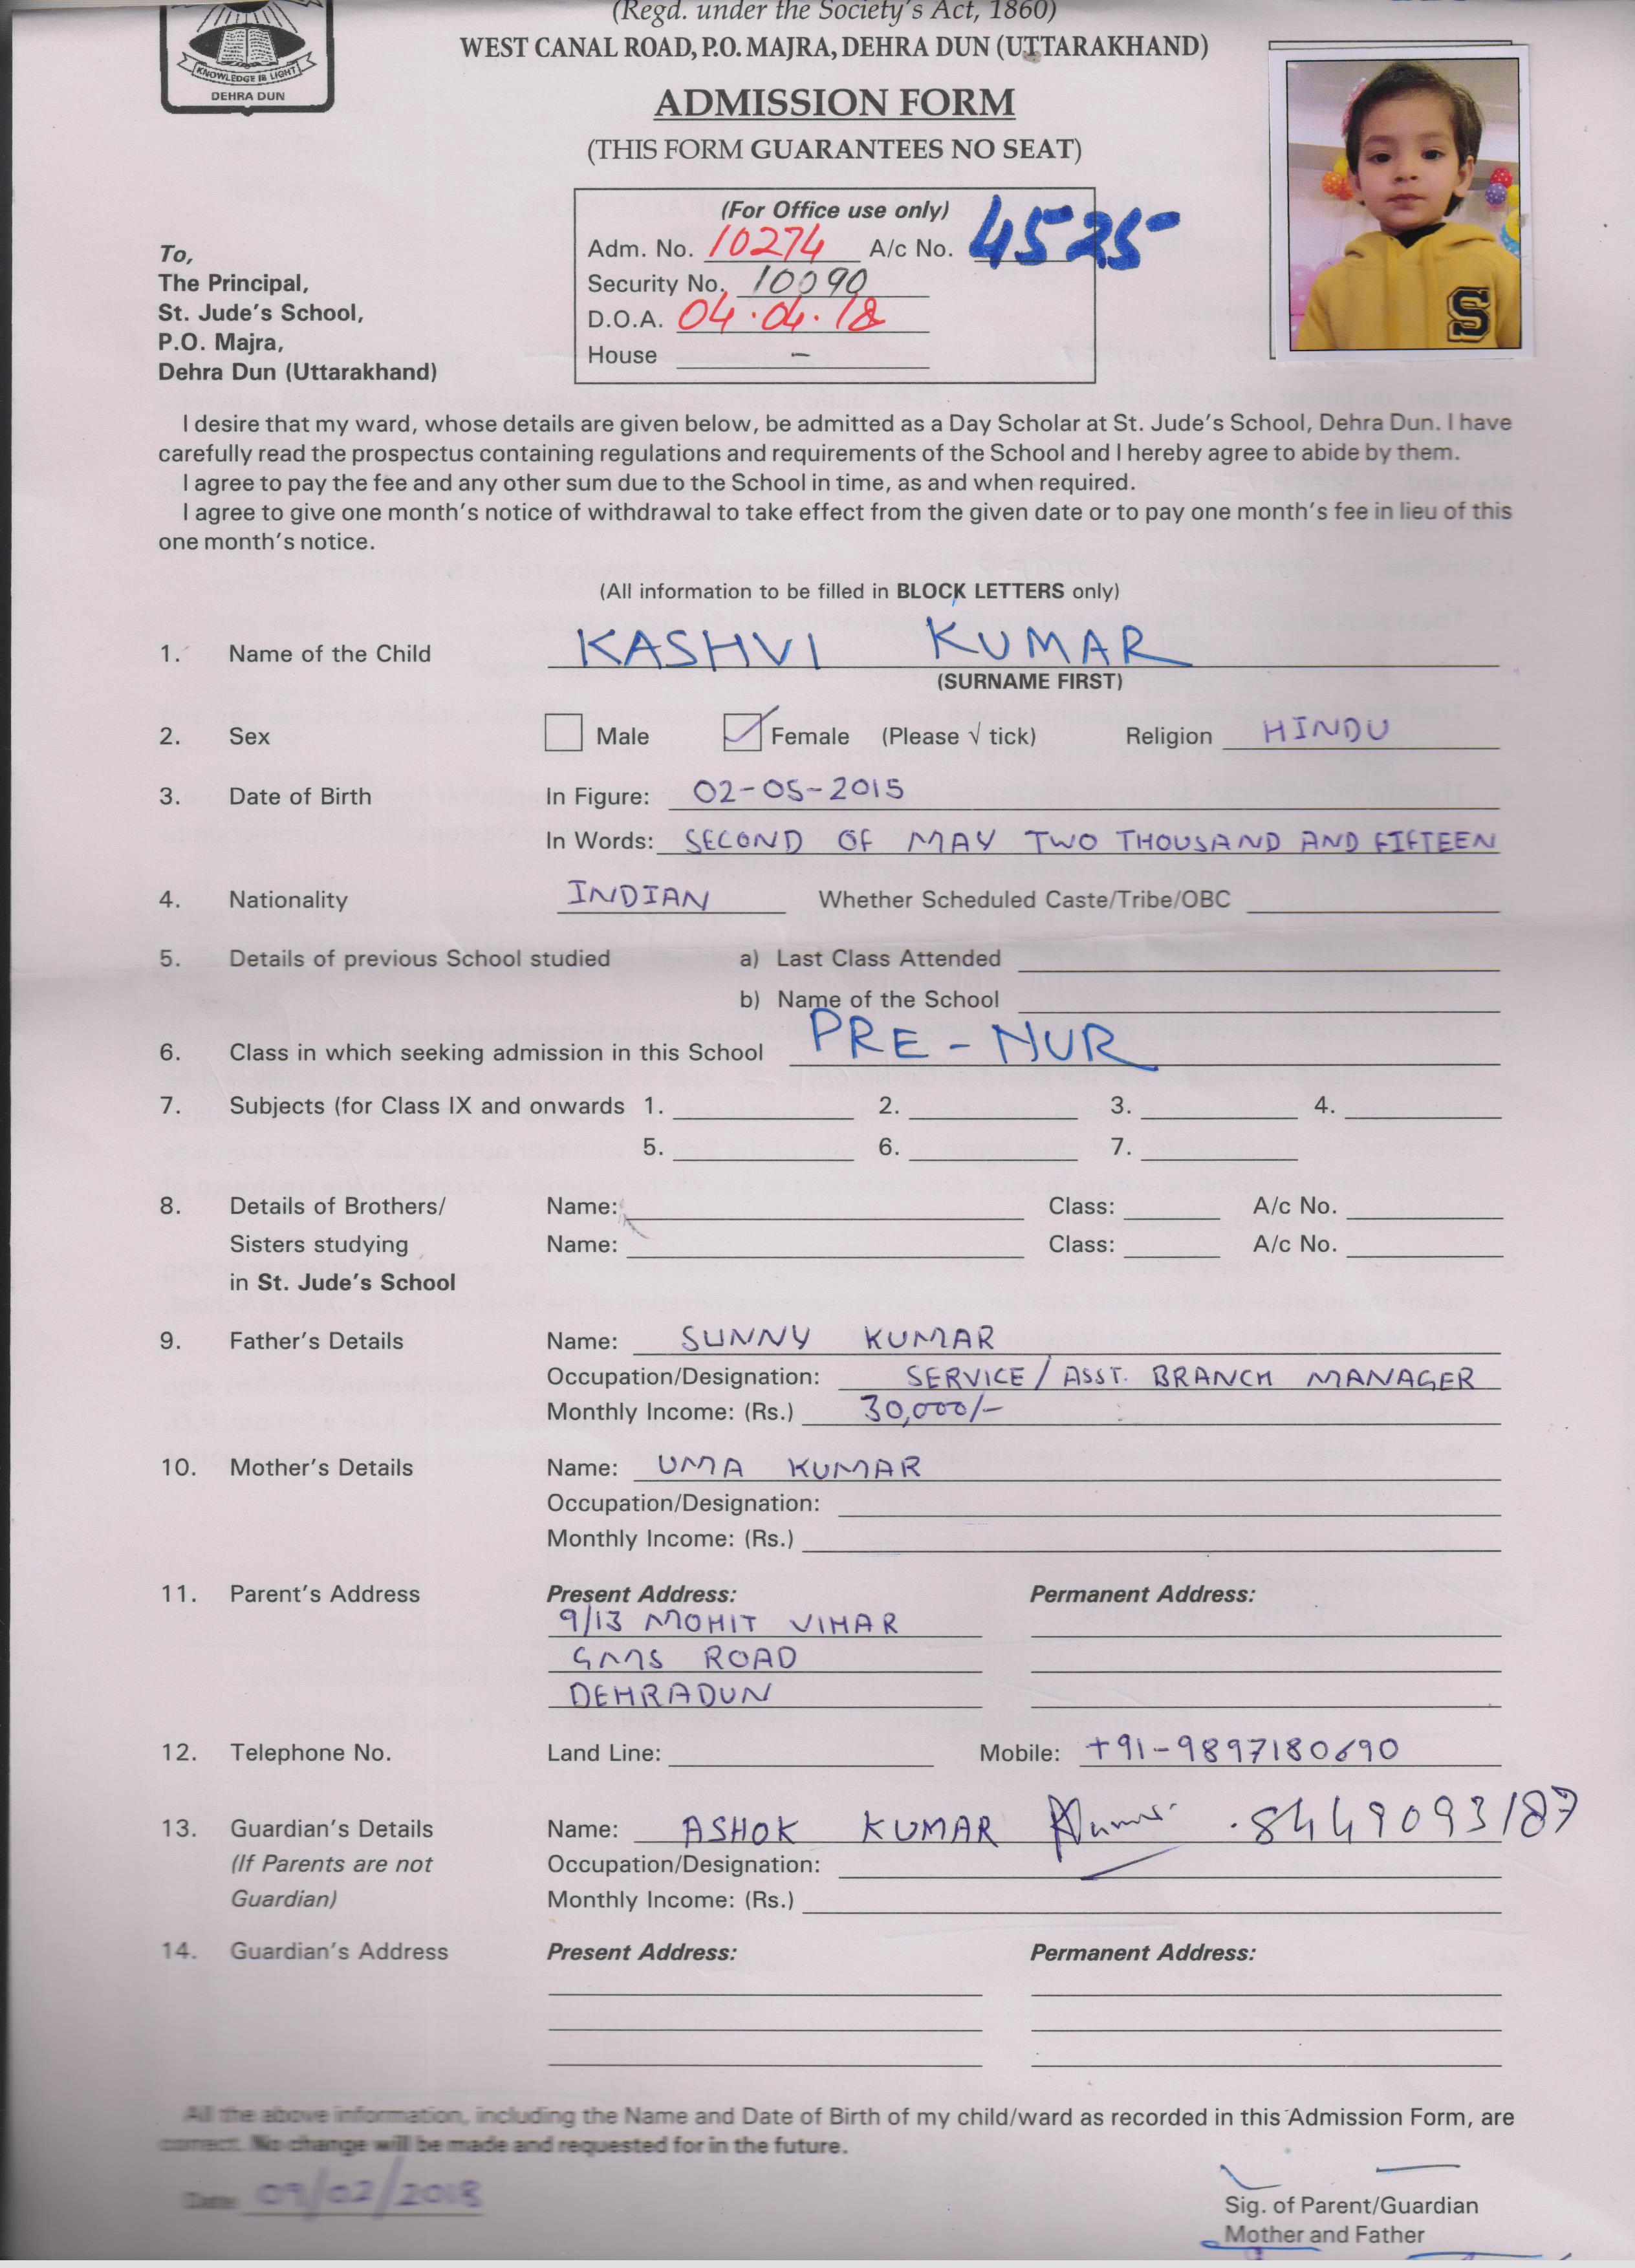 (Regd. under the Society's Act, 1860)
WEST CANAL ROAD, P.O. MAJRA, DEHRA DUN (UTTARAKHAND)
KNOWLEDGE IS LIGHT
DEHRA DUN
ADMISSION FORM
(THIS FORM GUARANTEES NO SEAT)
(For Office use only)
Adm. No. 10274 A/c No. 4525
Security No. 10090
D.O.A. 04.04.18
House –
To,
The Principal,
St. Jude's School,
P.O. Majra,
Dehra Dun (Uttarakhand)
S
I desire that my ward, whose details are given below, be admitted as a Day Scholar at St. Jude's School, Dehra Dun. I have
carefully read the prospectus containing regulations and requirements of the School and I hereby agree to abide by them.
I agree to pay the fee and any other sum due to the School in time, as and when required.
I agree to give one month's notice of withdrawal to take effect from the given date or to pay one month's fee in lieu of this
one month's notice.
(All information to be filled in BLOCK LETTERS only)
1. Name of the Child KASHVI KUMAR
(SURNAME FIRST)
2. Sex Male Female (Please √ tick) Religion HINDU
3. Date of Birth In Figure: 02-05-2015
In Words: SECOND OF MAY TWO THOUSAND AND FIFTEEN
4. Nationality INDIAN Whether Scheduled Caste/Tribe/OBC
5. Details of previous School studied a) Last Class Attended
b) Name of the School
6. Class in which seeking admission in this School PRE-NUR
7. Subjects (for Class IX and onwards 1. 2. 3. 4.
5. 6. 7.
8. Details of Brothers/ Name: Class: A/c No.
Sisters studying Name: Class: A/c No.
in St. Jude's School
9. Father's Details Name: SUNNY KUMAR
Occupation/Designation: SERVICE/ASST. BRANCH MANAGER
Monthly Income: (Rs.) 30,000/-
10. Mother's Details Name: UMA KUMAR
Occupation/Designation:
Monthly Income: (Rs.)
11. Parent's Address Present Address: Permanent Address:
9/13 MOHIT VIHAR
GMS ROAD
DEHRADUN
12. Telephone No. Land Line: Mobile: +91-9897180690
13. Guardian's Details Name: ASHOK KUMAR 8449093187
(If Parents are not Occupation/Designation:
Guardian) Monthly Income: (Rs.)
14. Guardian's Address Present Address: Permanent Address:
All the above information, including the Name and Date of Birth of my child/ward as recorded in this Admission Form, are
correct. No change will be made and requested for in the future.
Date 09/02/2018
Sig. of Parent/Guardian
Mother and Father